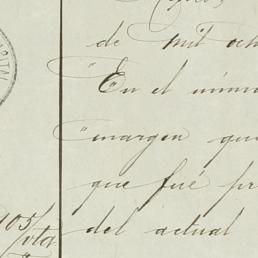 de mil och
"En el númer
"margen que
que fué pr
105/
vta
del actual